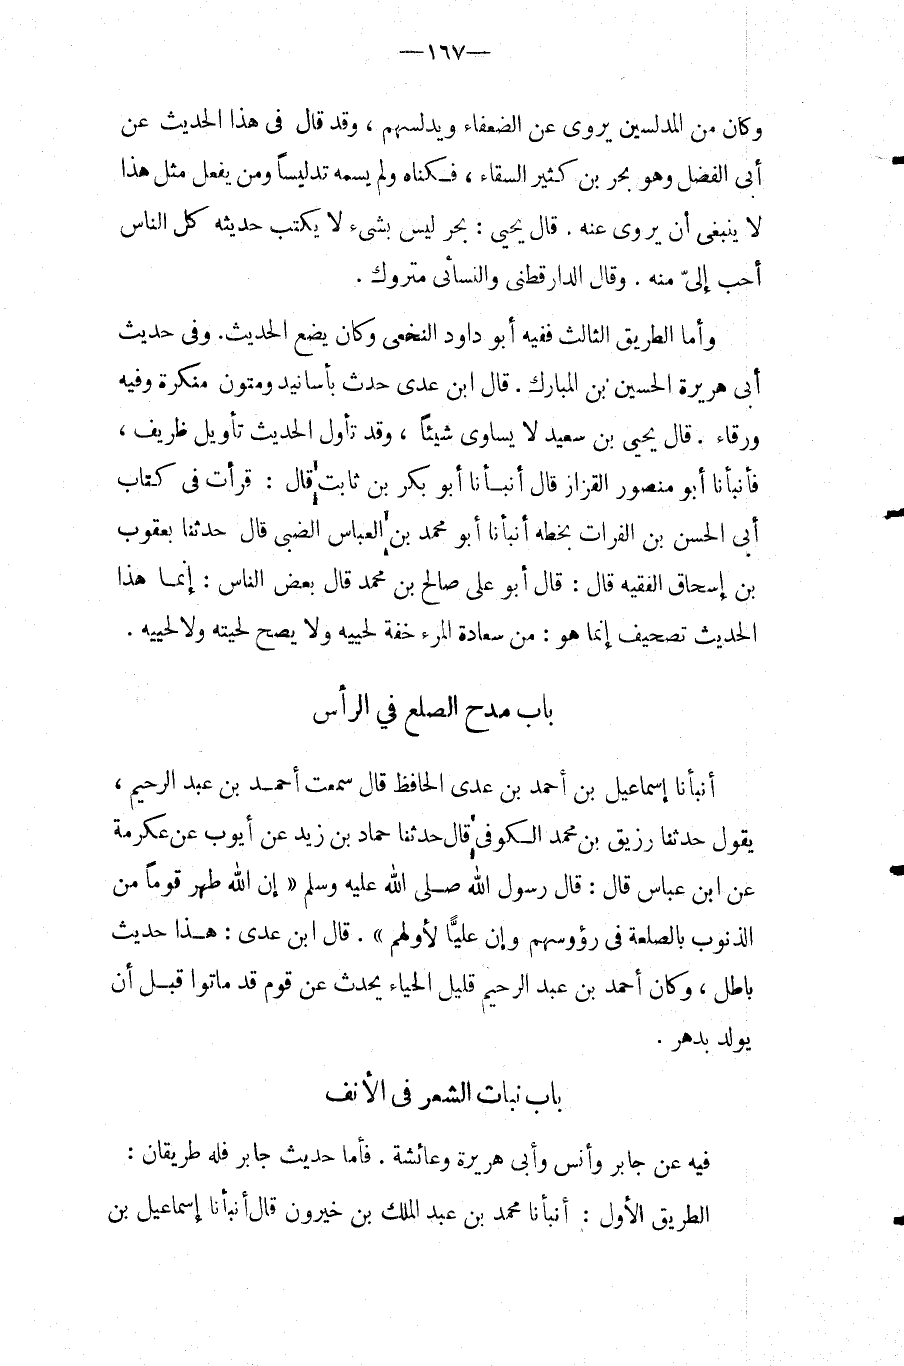 —١٦٧—
وكان من المدلسين يروى عن الضعفاء ويدلسهم ، وقد قال فى هذا الحديث عن
أبى الفضل وهو بحر بن كثير السقاء ، فـكناه ولم يسمه تدليساً ومن يفعل مثل هذا
لا ينبغى أن يروى عنه . قال يحيى : بحر ليس بشىء لا يكتب حديثه كل الناس
أحب إلىّ منه . وقال الدارقطنى والنسأنى متروك .
وأما الطريق الثالث ففيه أبو داود النخعى وكان يضع الحديث. وفى حديث
أبى هريرة الحسين بن المبارك . قال ابن عدى حدث بأسانيد ومتون منكرة وفيه
ورقاء . قال يحيى بن سعيد لا يساوى شيئاً ، وقد تأول الحديث تأويل ظريف ،
فأنبأنا أبو منصور القزاز قال أنبـأنا أبو بكر بن ثابت قال : قرأت فى كتاب
أبى الحسن بن الفرات بخطه أنبأنا أبو محمد بن العباس الضبى قال حدثنا يعقوب
بن إسحاق الفقيه قال : قال أبو على صالح بن محمد قال بعض الناس : إنمـا هذا
الحديث تصحيف إنما هو : من سعادة المرء خفة لحييه ولا يصح لحيته ولالحييه .
باب مدح الصلع في الرأس
أنبأنا إسماعيل بن أحمد بن عدى الحافظ قال سمعت أحمـد بن عبد الرحيم ،
يقول حدثنا رزيق بن محمد الـكوفى قال حدثنا حماد بن زيد عن أيوب عن عكرمة
عن ابن عباس قال : قال رسول الله صـلى الله عليه وسلم « إن الله طهر قوماً من
الذنوب بالصلعة فى رؤوسهم وإن عليًّا لأولهم » . قال ابن عدى : هـذا حديث
باطل ، وكان أحمد بن عبد الرحيم قليل الحياء يحدث عن قوم قد ماتوا قبـل أن
يولد بدهر .
باب نبات الشعر فى الأنف
فيه عن جابر وأنس وأبى هريرة وعائشة . فأما حديث جابر فله طريقان :
الطريق الأول : أنبأنا محمد بن عبد الملك بن خيرون قال أنبأنا إسماعيل بن